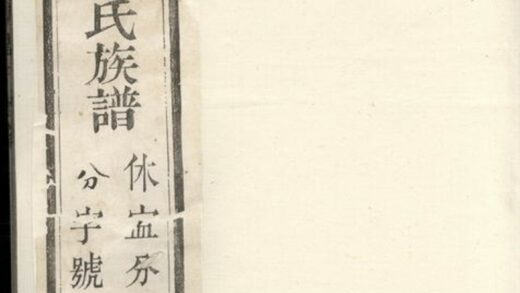 氏族譜
休分
分字號